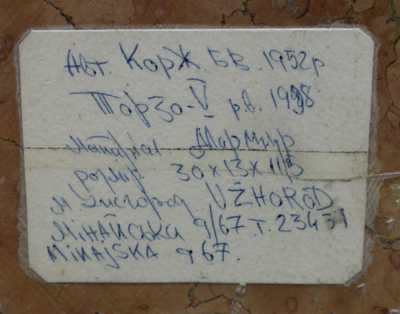 Авт. Корж Б В. 1952р
Торзо-V р.в. 1998
Матеріал Мармур
розмір 30х13х11,5
м. Ужгород UŽHOROD
Мінайська 9/67 т. 23431
MINAJSKA 9 67.